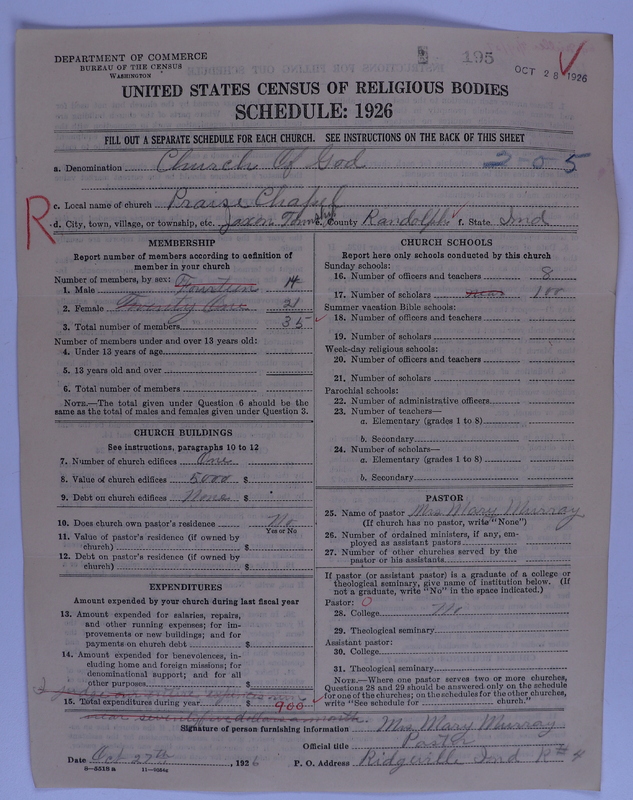 DEPARTMENT OF COMMERCE
BUREAU OF THE CENSUS
WASHINGTON
195
OCT 28 1926
UNITED STATES CENSUS OF RELIGIOUS BODIES
SCHEDULE: 1926
FILL OUT A SEPARATE SCHEDULE FOR EACH CHURCH. SEE INSTRUCTIONS ON THE BACK OF THIS SHEET
a. Denomination Church Of God 2-0-5
c. Local name of church Praise Chapel
R
d. City, town, village, or township, etc. Jaxon Township County Randolph f. State Ind
MEMBERSHIP
Report number of members according to definition of
member in your church
Number of members, by sex:
1. Male Fourteen 14
2. Female Twenty One 21
3. Total number of members 35
Number of members under and over 13 years old:
4. Under 13 years of age
5. 13 years old and over
6. Total number of members
NOTE.—The total given under Question 6 should be the
same as the total of males and females given under Question 3.
CHURCH BUILDINGS
See instructions, paragraphs 10 to 12
7. Number of church edifices One
8. Value of church edifices 5000 $
9. Debt on church edifices None $
10. Does church own pastor's residence No
Yes or No
11. Value of pastor's residence (if owned by
church) $
12. Debt on pastor's residence (if owned by
church) $
EXPENDITURES
Amount expended by your church during last fiscal year
13. Amount expended for salaries, repairs,
and other running expenses; for im-
provements or new buildings; and for
payments on church debt $
14. Amount expended for benevolences, in-
cluding home and foreign missions; for
denominational support; and for all
other purposes $
15. Total expenditures during year $ 900
near seventy five dollars a month
CHURCH SCHOOLS
Report here only schools conducted by this church
Sunday schools:
16. Number of officers and teachers 8
17. Number of scholars 100
Summer vacation Bible schools:
18. Number of officers and teachers
19. Number of scholars
Week-day religious schools:
20. Number of officers and teachers
21. Number of scholars
Parochial schools:
22. Number of administrative officers
23. Number of teachers—
a. Elementary (grades 1 to 8)
b. Secondary
24. Number of scholars—
a. Elementary (grades 1 to 8)
b. Secondary
PASTOR
25. Name of pastor Mrs. Mary Murray
(If church has no pastor, write "None")
26. Number of ordained ministers, if any, em-
ployed as assistant pastors
27. Number of other churches served by the
pastor or his assistants
If pastor (or assistant pastor) is a graduate of a college or
theological seminary, give name of institution below. (If
not a graduate, write "No" in the space indicated.)
Pastor: 0
28. College No
29. Theological seminary
Assistant pastor:
30. College
31. Theological seminary
NOTE.—Where one pastor serves two or more churches,
Questions 28 and 29 should be answered only on the schedule
for one of the churches; on the schedules for the other churches,
write "See schedule for church."
Signature of person furnishing information Mrs. Mary Murray
Official title Pastor
Date Oct 27th, 1926 P. O. Address Ridgeville Ind R# 4
8—5518a 11—9584a